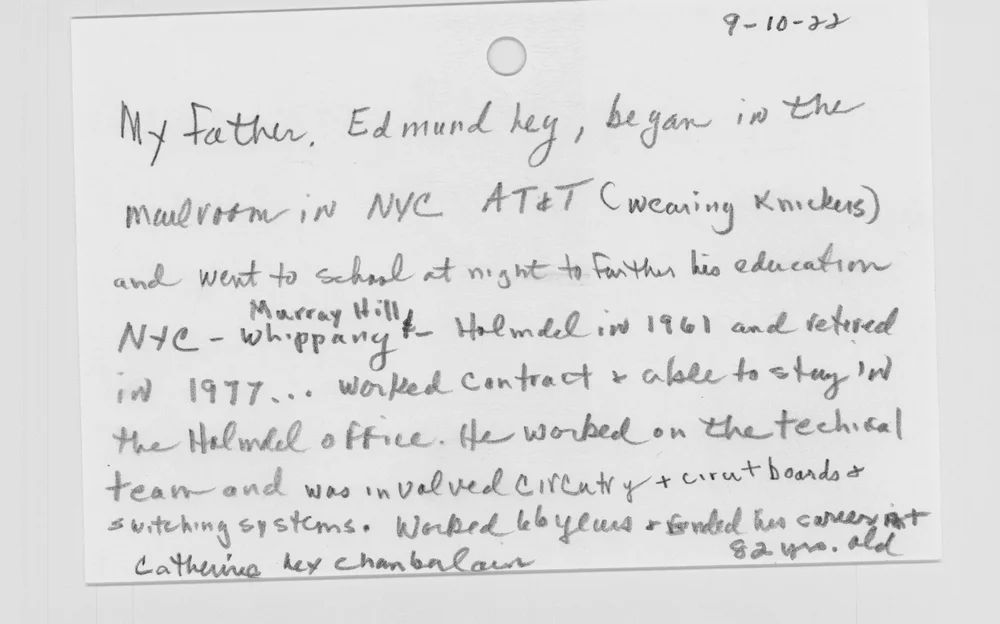 9-10-22
My Father, Edmund Ley, began in the
mailroom in NYC AT&T (wearing Knickers)
and went to school at night to Further his education
Murray Hill &
NYC - Whippany - Holmdel in 1961 and retired
in 1977... worked contract & able to stay in
the Holmdel office. He worked on the techical
team and was involved circutry + circut boards &
switching systems. Worked 66 years & ended his career at
82 yrs. old
Catherine Ley Chamberlain